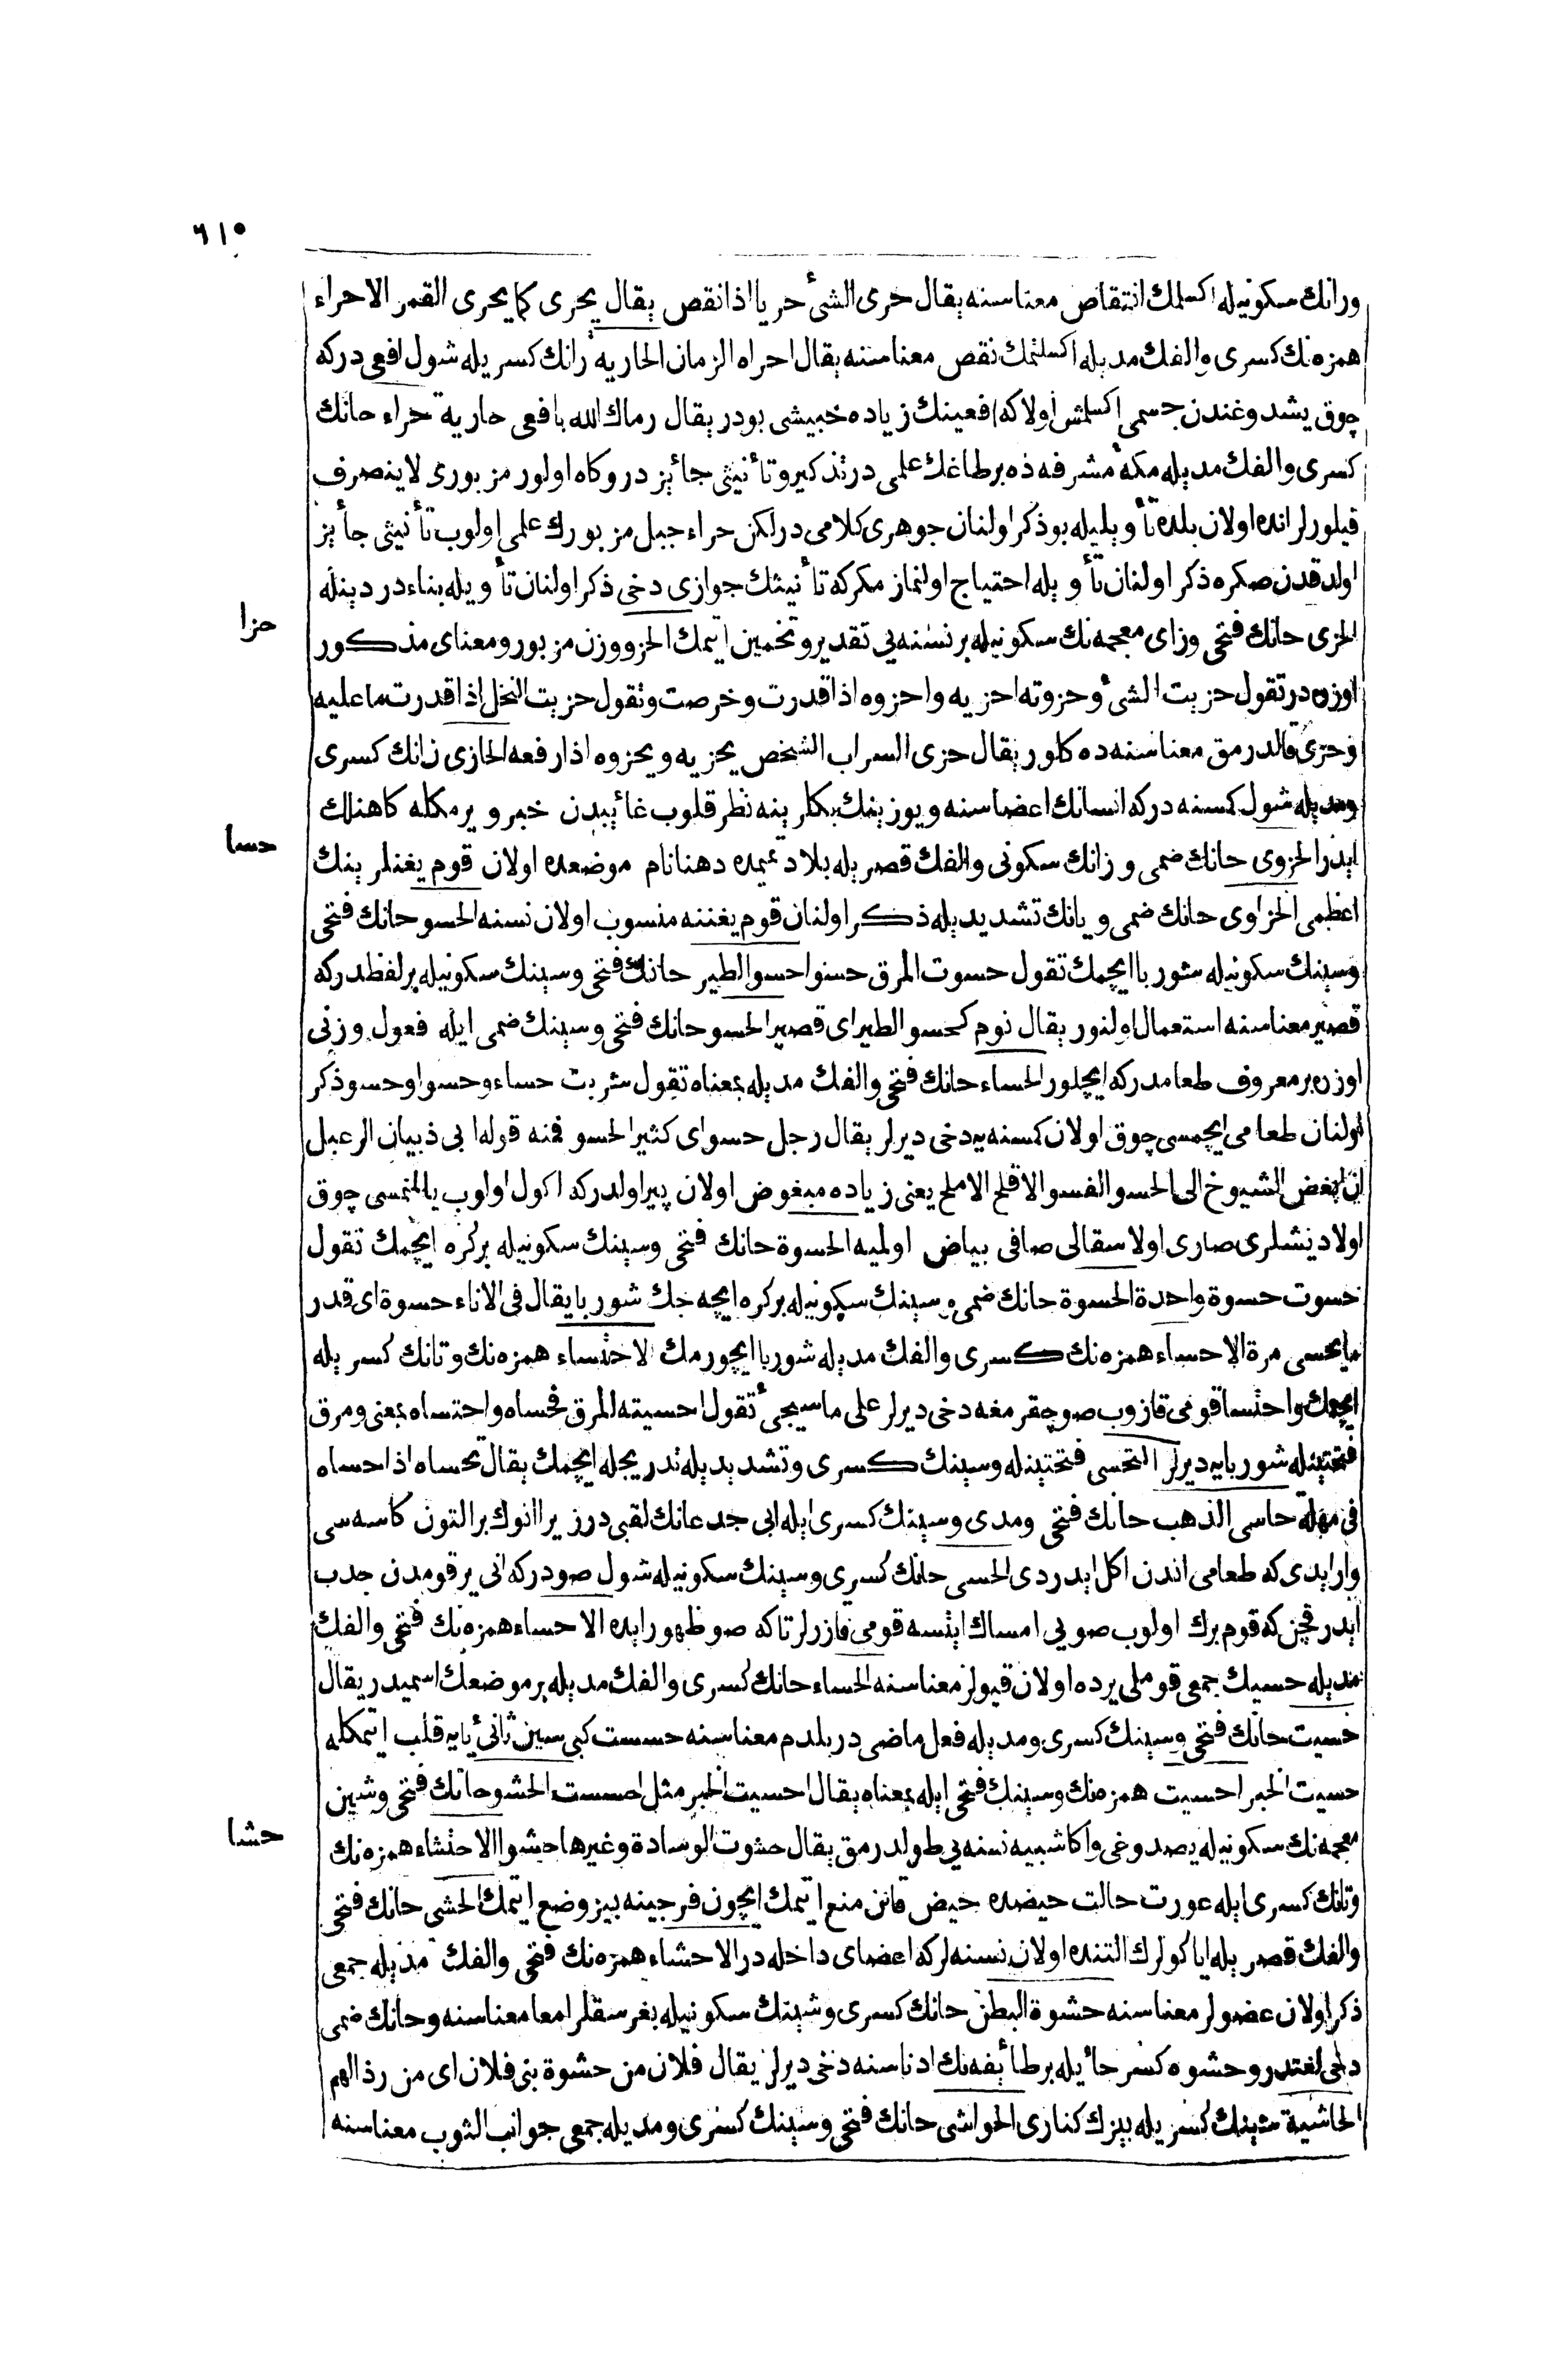 ٦١٥
ورانك سكونيله اكسلمك انتقاص معناسنه يقال حرى الشئ حريا اذا نقص يقال يحرى كما يحرى القمر الاحراء
همزه نك كسرى والفك مديله اكسلتمك نقص معناسنه يقال احراه الزمان الحارية رانك كسريله شول افعى دركه
چوق يشدوغندن جسمى اكسلمش اولا كه افعينك زياده خبيشى بودر يقال رماك الله بافعى حارية حراء حانك
كسرى والفك مديله مكهٔ مشرفه ده بر طاغك علمى در تذكير وتأنيثى جائز در وكاه اولور مزبورى لاينصرف
قيلورلر انده اولان بلده تأويليله بو ذكر اولنان جوهرى كلامى در لكن حراء جبل مزبورك علمى اولوب تأنيثى جائز
اولدقدن صكره ذكر اولنان تأويله احتياج اولنماز مكركه تأنيثك جوازى دخى ذكر اولنان تأويله بناء در دينله
حزا
الحزى حانك فتحى وزاى معجمه نك سكونيله بر نسنه يى تقدير وتخمين ايتمك الحزو وزن مزبور ومعناى مذكور
اوزره در تقول حزيت الشئ وحزوته احزيه واحزوه اذا قدرت وخرصت وتقول حزيت النخل اذا قدرت ما عليه
وحزى قالدرمق معناسنه ده كلور يقال حزى السراب الشخص يحزيه ويحزوه اذا رفعه الحازى زانك كسرى
ومديله شول كسنه دركه انسانك اعضاسنه ويوزينك بكلرينه نظر قلوب غائبدن خبر ويرمكله كاهنلك
حسا
ايدر الحزوى حانك ضمى وزانك سكونى والفك قصريله بلاد تميمده دهنا نام موضعده اولان قوم يغنلرينك
اعظمى الحزاوى حانك ضمى ويانك تشديديله ذكر اولنان قوم يغننه منسوب اولان نسنه الحسو حانك فتحى
وسينك سكونيله شوربا ايچمك تقول حسوت المرق حسوا حسو الطير حانك فتحى وسينك سكونيله بر لفظدركه
قصير معناسنه استعمال اولنور يقال نوم كحسو الطير اى قصير الحسو حانك فتحى وسينك ضمى ايله فعول وزنى
اوزره بر معروف طعامدركه ايچلور الحساء حانك فتحى والفك مديله بمعناه تقول شربت حساء وحسوا وحسو ذكر
اولنان طعامى ايچمسى چوق اولان كسنه يه دخى ديرلر يقال رجل حسو اى كثير الحسو فمنه قول ابى ذبيان الرعبل
ان ابغض الشيوخ الى الحسو الفسو الاقلح الاملح يعنى زياده مبغوض اولان پير اولدركه اكول اولوب يالنمسى چوق
اولا ديشلرى صارى اولا سقالى صافى بياض اولميه الحسوة حانك فتحى وسينك سكونيله بر كره ايچمك تقول
حسوت حسوة واحدة الحسوة حانك ضمى وسينك سكونيله بر كره ايچه جك شوربا يقال فى الاناء حسوة اى قدر
ما يحسى مرة الاحساء همزه نك كسرى والفك مديله شوربا ايچورمك الاحتساء همزه نك وتانك كسريله
ايچمك واحتسا قومى قازوب صو چقرمغه دخى ديرلر على ما سيجئ تقول احسيته المرق فحساه واحتساه بمعنى ومرق
فتحتينله شوربايه ديرلر التحسى فتحتينله وسينك كسرى وتشديديله تدريجله ايچمك يقال تحساه اذا حساه
فى مهلة حاسى الذهب حانك فتحى ومدى وسينك كسرى ايله ابى جدعانك لقبى در زيرا انوك بر التون كاسه سى
وار ايدى كه طعامى اندن اكل ايدردى الحسى حانك كسرى وسينك سكونيله شول صودركه انى ير قومدن جذب
ايدر قچن كه قوم برك اولوب صويى امساك ايتسه قومى قازرلر تا كه صو ظهور ايده الاحساء همزه نك فتحى والفك
مديله حسيك جمعى قوملى يرده اولان قيولر معناسنه الحساء حانك كسرى والفك مديله بر موضعك اسميدر يقال
حسيت حانك فتحى وسينك كسرى ومديله فعل ماضى در بلدم معناسنه حسست كبى سين ثانئ يايه قلب ايتمكله
حسيت الخبر احسيت همزه نك وسينك فتحى ايله بمعناه يقال احسيت الخبر مثل احسست الحشو حانك فتحى وشين
حشا
معجمه نك سكونيله يصدوغى واكا شبيه نسنه يى طولدرمق يقال حشوت الوسادة وغيرها حشوا الاحتشاء همزه نك
وتانك كسرى ايله عورت حالت حيضده حيض قانن منع ايتمك ايچون فرجينه بيز وضع ايتمك الحشى حانك فتحى
والفك قصريله اياكولرك التنده اولان نسنه لركه اعضاى داخله در الاحشاء همزه نك فتحى والفك مديله جمعى
ذكر اولان عضولر معناسنه حشوة البطن حانك كسرى وشينك سكونيله بغرسقلر امعا معناسنه وحانك ضمى
دخى لغتدر وحشوه كسر حائله بر طائفه نك ادناسنه دخى ديرلر يقال فلان من حشوة بنى فلان اى من رذالهم
الحاشية شينك كسريله بيزك كنارى الحواشى حانك فتحى وسينك كسرى ومديله جمعى جوانب الثوب معناسنه